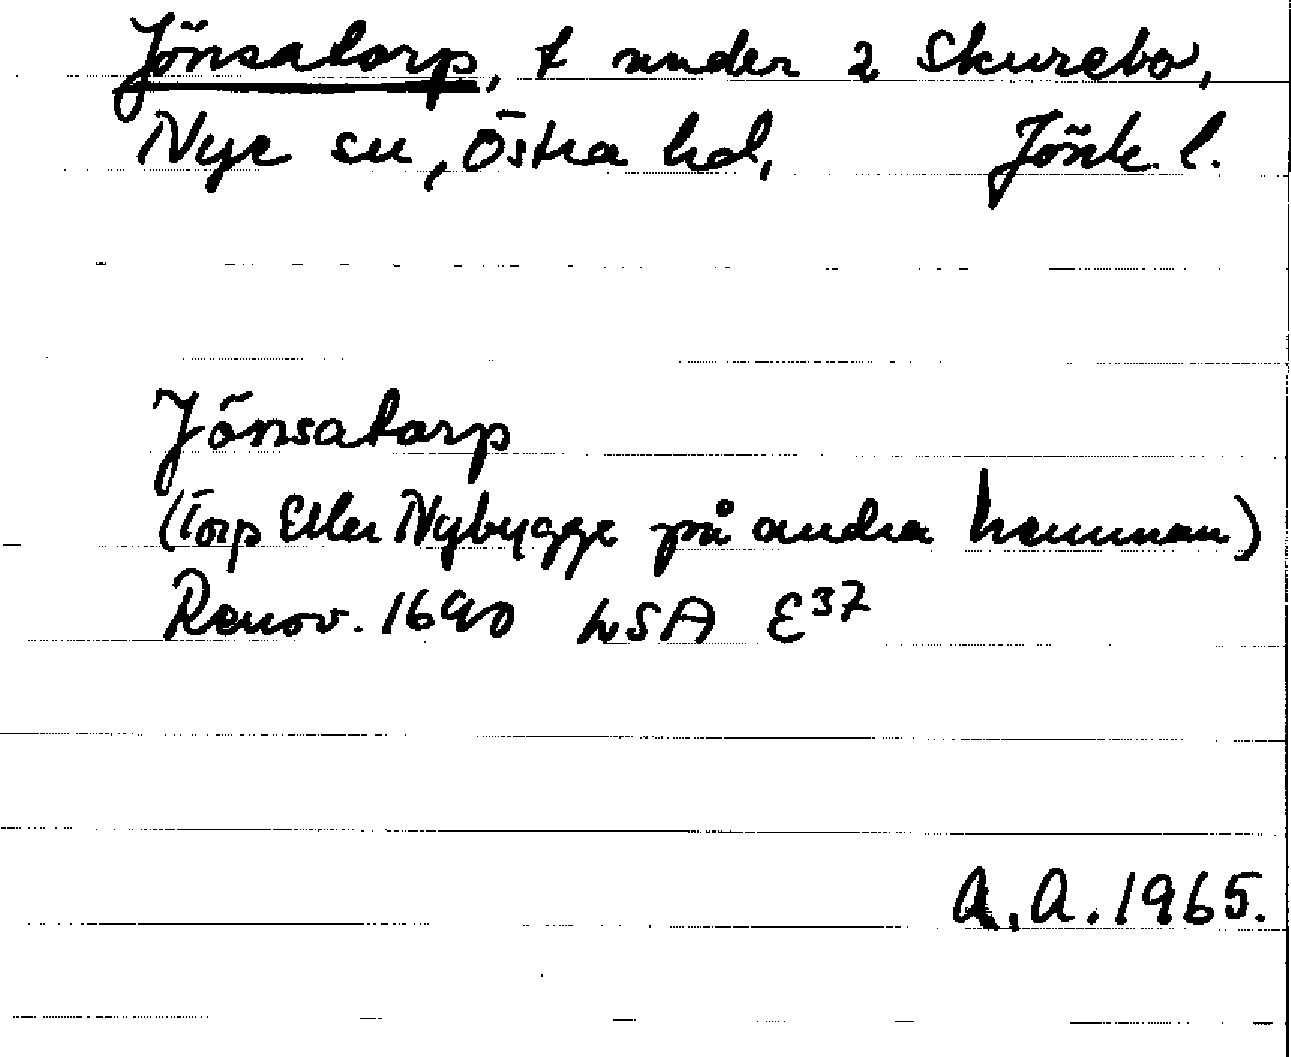 Jönsatorp, t under 2 Skurebo,
Nye sn, Östra hd, Jönk. l.
Jönsatorp
(Torp Eller Nybygge på andra hemman)
Renov. 1690 LSA E37
A.A. 1965.